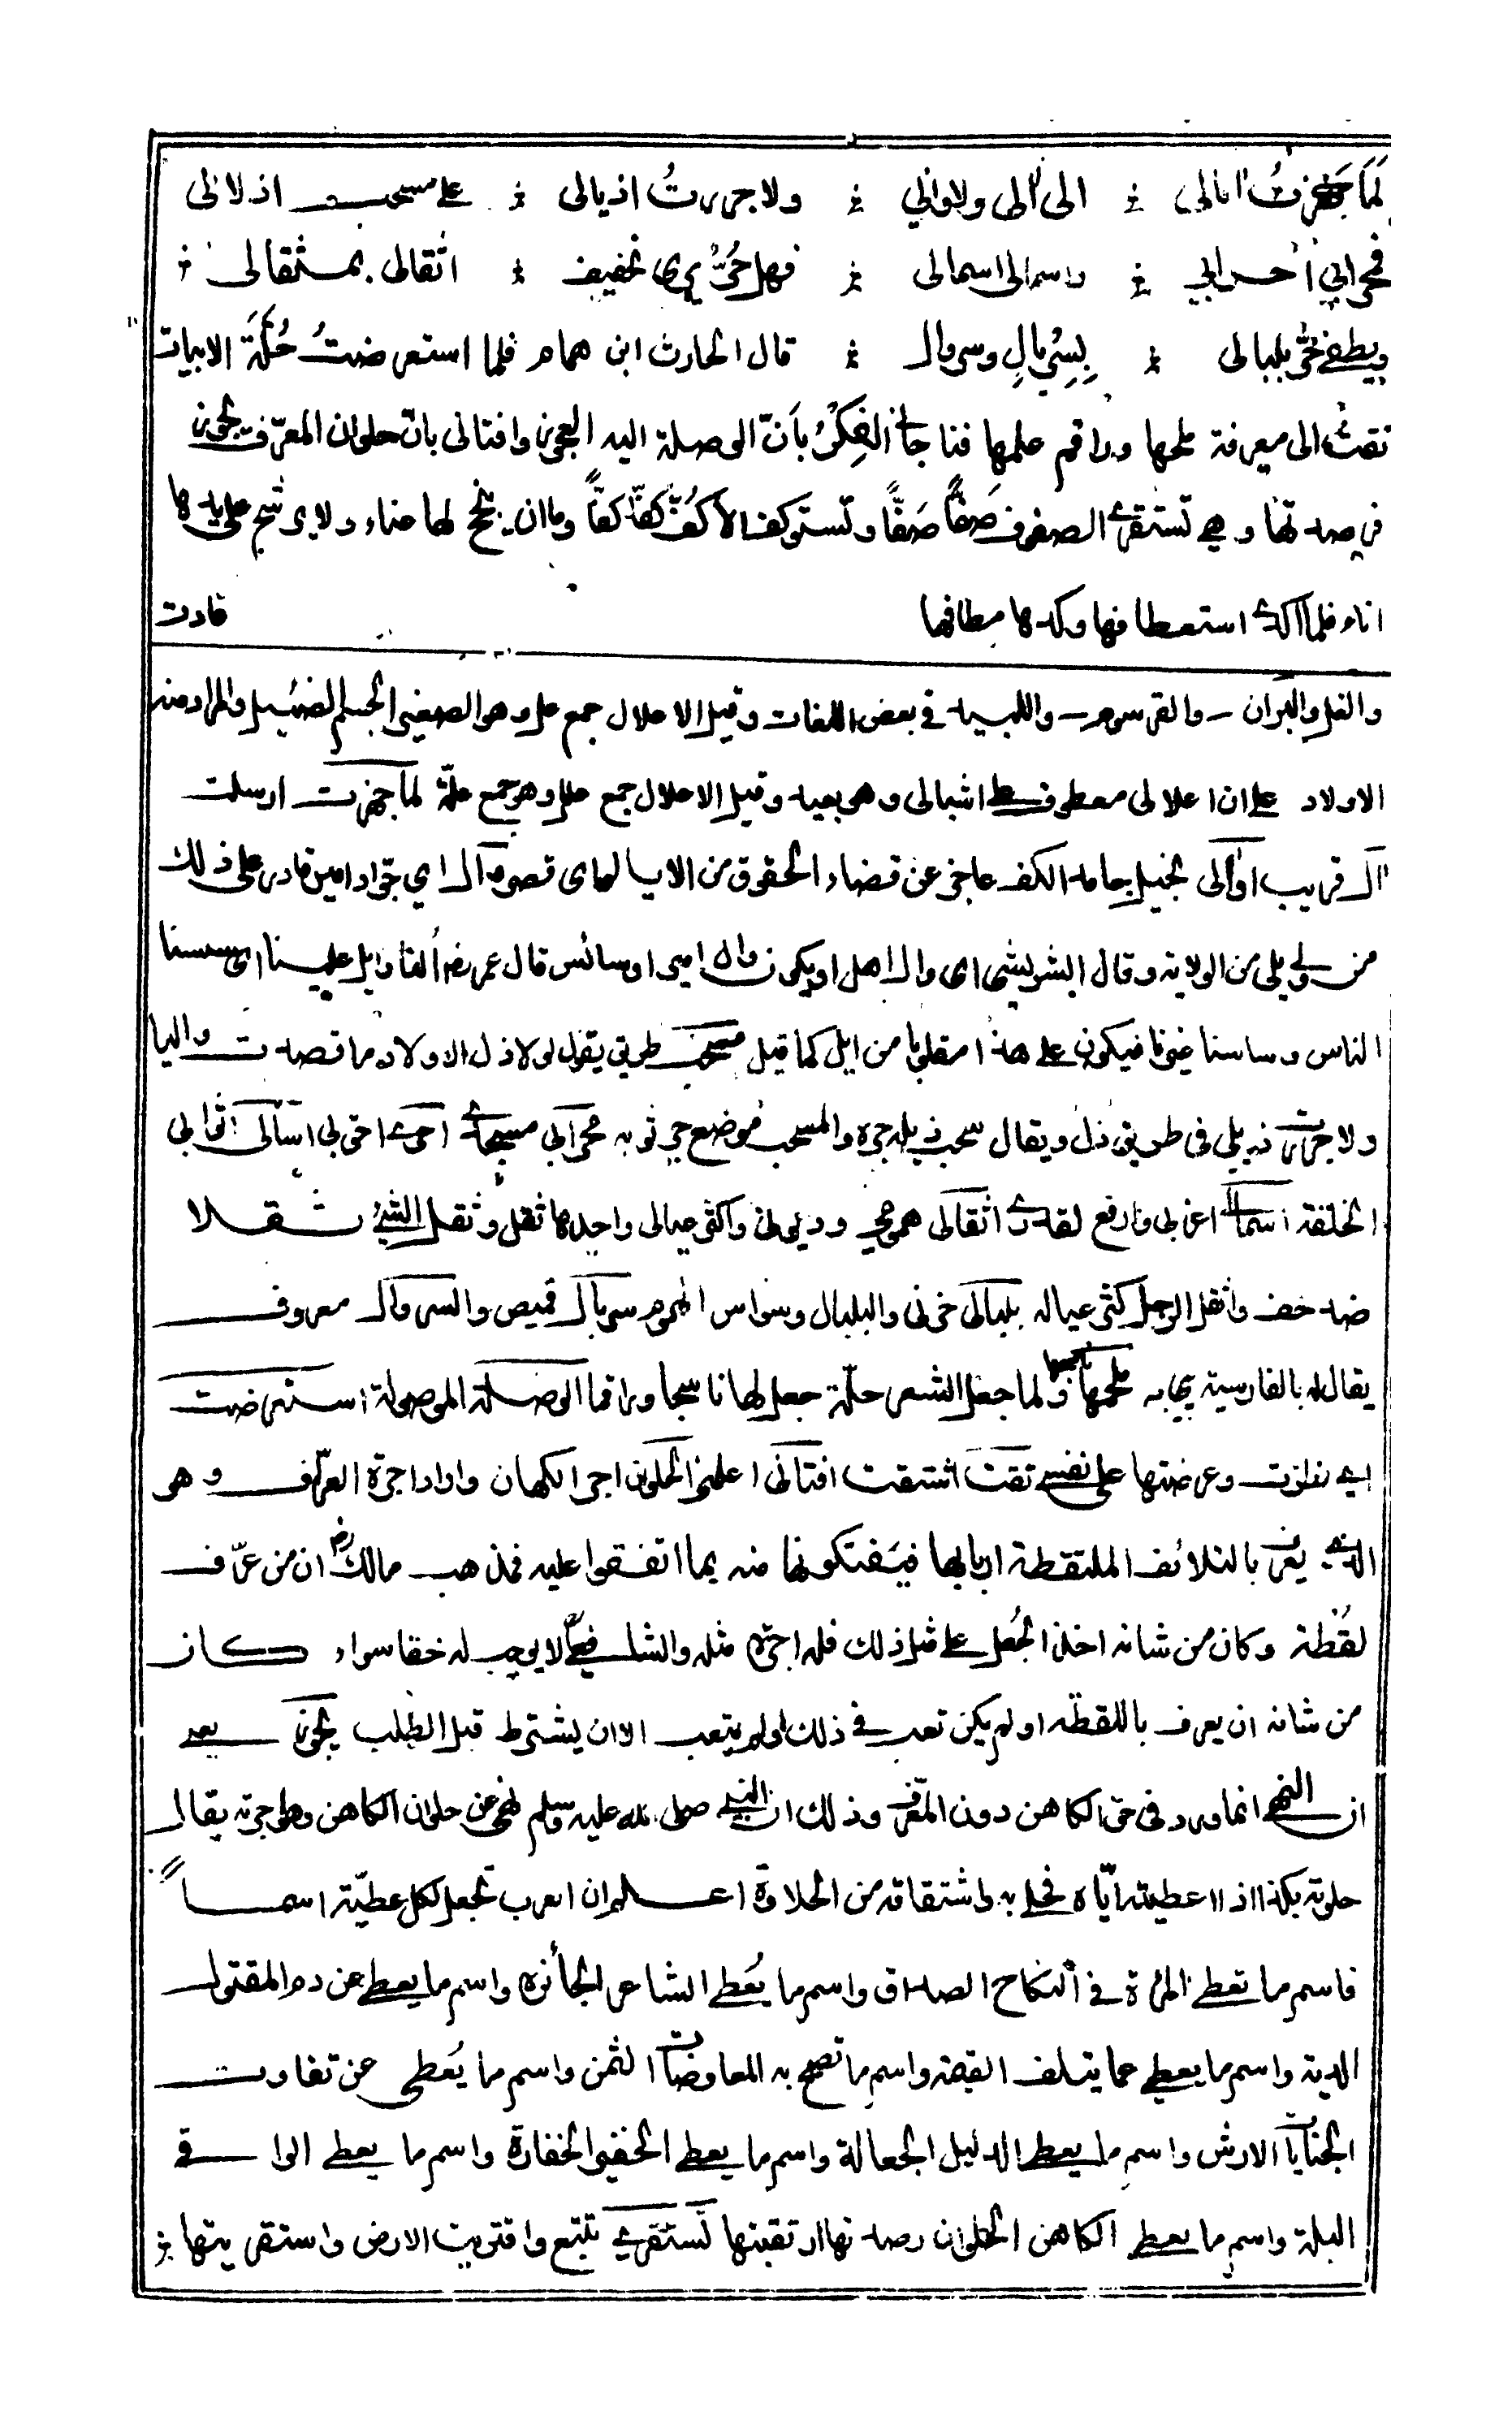 لَمَا جَهَّزتُ امالى ⁂ الى آلى ولا والي ⁂ ولا جررتُ اذيالى ⁂ على مسحب اذلالى
فمحرابي أحرى بي ⁂ واسمالى اسمالى ⁂ فهل حُرٌّ يرى تخفيف ⁂ اثقالى بمثقالى ⁂
ويطفئ حرّ بلبالى ⁂ بِسِربالٍ وسروال ⁂ قال الحارث ابن همام فلما استعرضتُ حُلَّةَ الابيات
تقتُ الى معرفة ملحمها وراقم علمها فناجاني الفكرُ بأنّ الوصلة اليه العجوز وافتانى بانّ حلوان المعرّف يجوز
فرصدتها وهي تستقرى الصفوف صَفًّا صَفًّا وتستوكف الاكفّ كفًّا كفًّا وما ان ينجح لها عناء ولا يرشح على يدها
اناء فلما اكدى استعطافها وكدها مطافها قادت
والقمل والبران والقرسوم واللبيد في بعض اللغات وقيل الاعلال جمع عل وهو الصغير الجسم الضئيل والمراد منه
الاولاد على ان اعلالى معطوف على اشبالى وهى بعيد وقيل الاعلال جمع علل وهو جمع علّة لما جهزت ارسلت
آل قريب اوآلى بخيل جامد الكف عاجز عن قضاء الحقوق من الايال اى قصور وال اي جواد امين قادر على ذلك
من ولى يلى من الولاية وقال الشريشى اى وال اهل او يكون وال امير اوسائس قال عمر رضه ألفا وايل علينا اى سسنا
الناس وساسنا غيرنا فيكون على هذا مقلوبا من ايل كما قيل مسحب طريق يقول لولا ذل الاولاد ما قصدت واليا
ولا جررت ذيلي فى طريق ذل ويقال سحب ذيله جره والمسحب موضع جر ثوبه محرابي مسجدى احرى احق بى اسمالى اثوابى
الخلقة اسمالى اعز بى وارفع لقدرى اثقالى همومى وديونى واكثر عيالى واحدها ثقل وثقل الشئ ثقلا
ضد خف واثقل الرجل كثر عياله بلبالى حزنى والبلبال وسواس الهموم سربال قميص والسروال معروف
يقال له بالفارسية بيجامه ملحمها ناسجها ولما جعل الشعر حلّة جعل لها ناسجا وراقما الوصلة الموصلة استعرضت
اى نظرت وعرضتها على نفسى تقت اشتقت افتانى اعلمنى الحلوان اجر الكهان واراد اجرة المعرّف وهى
الذى يعرف بالتلائف الملتقطة اربابها فيستفكونها منه بما اتفقوا عليه فمذهب مالك رضه ان من عرّف
لقُطة وكان من شانه اخذ الجُعل على مثل ذلك فله اجرة مثله والشافعىّ لا يوجب له حقا سواء كان
من شانه ان يعرف باللقطة او لم يكن تعب فى ذلك اولم يتعب الا ان يشترط قبل الطلب يجوز يعنى
ان النهى انما ورد فى حق الكاهن دون المعرّف وذلك ان النبى صلى الله عليه وسلم نهى عن حلوان الكاهن وهو اجرته يقال
حلوته بكذا اذا اعطيته ايّاه فحلى به واشتقاقه من الحلاوة اعلم ان العرب تجعل لكل عطيّة اسماً
فاسم ما تعطى المرأة فى النكاح الصداق واسم ما يُعطى الشاعر الجائزة واسم ما يعطى عن دم المقتول
الدية واسم ما يعطى عما يتلف القيمة واسم ما تصح به المعاوضات الثمن واسم ما يُعطى عن تفاوت
الجنايات الارش واسم ما يعطى الدليل الجعالة واسم ما يعطى الخفير الخفارة واسم ما يعطى الراقى
البسلة واسم ما يعطى الكاهن الحلوان رصدتها ارتقبتها تستقرى تتبع واقتريت الارض واستقريتها